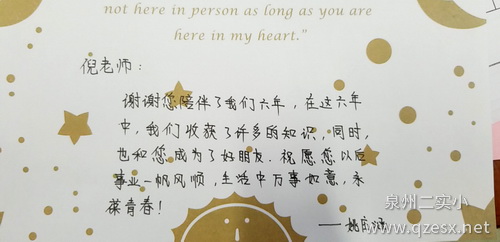 not here in person as long as you are
here in my heart."
倪老师：
谢谢您陪伴了我们六年，在这六年
中，我们收获了许多的知识，同时，
也和您成为了好朋友．祝愿您以后
事业一帆风顺，生活中万事如意，永
葆青春！
泉州二实小
www.qzesx.net